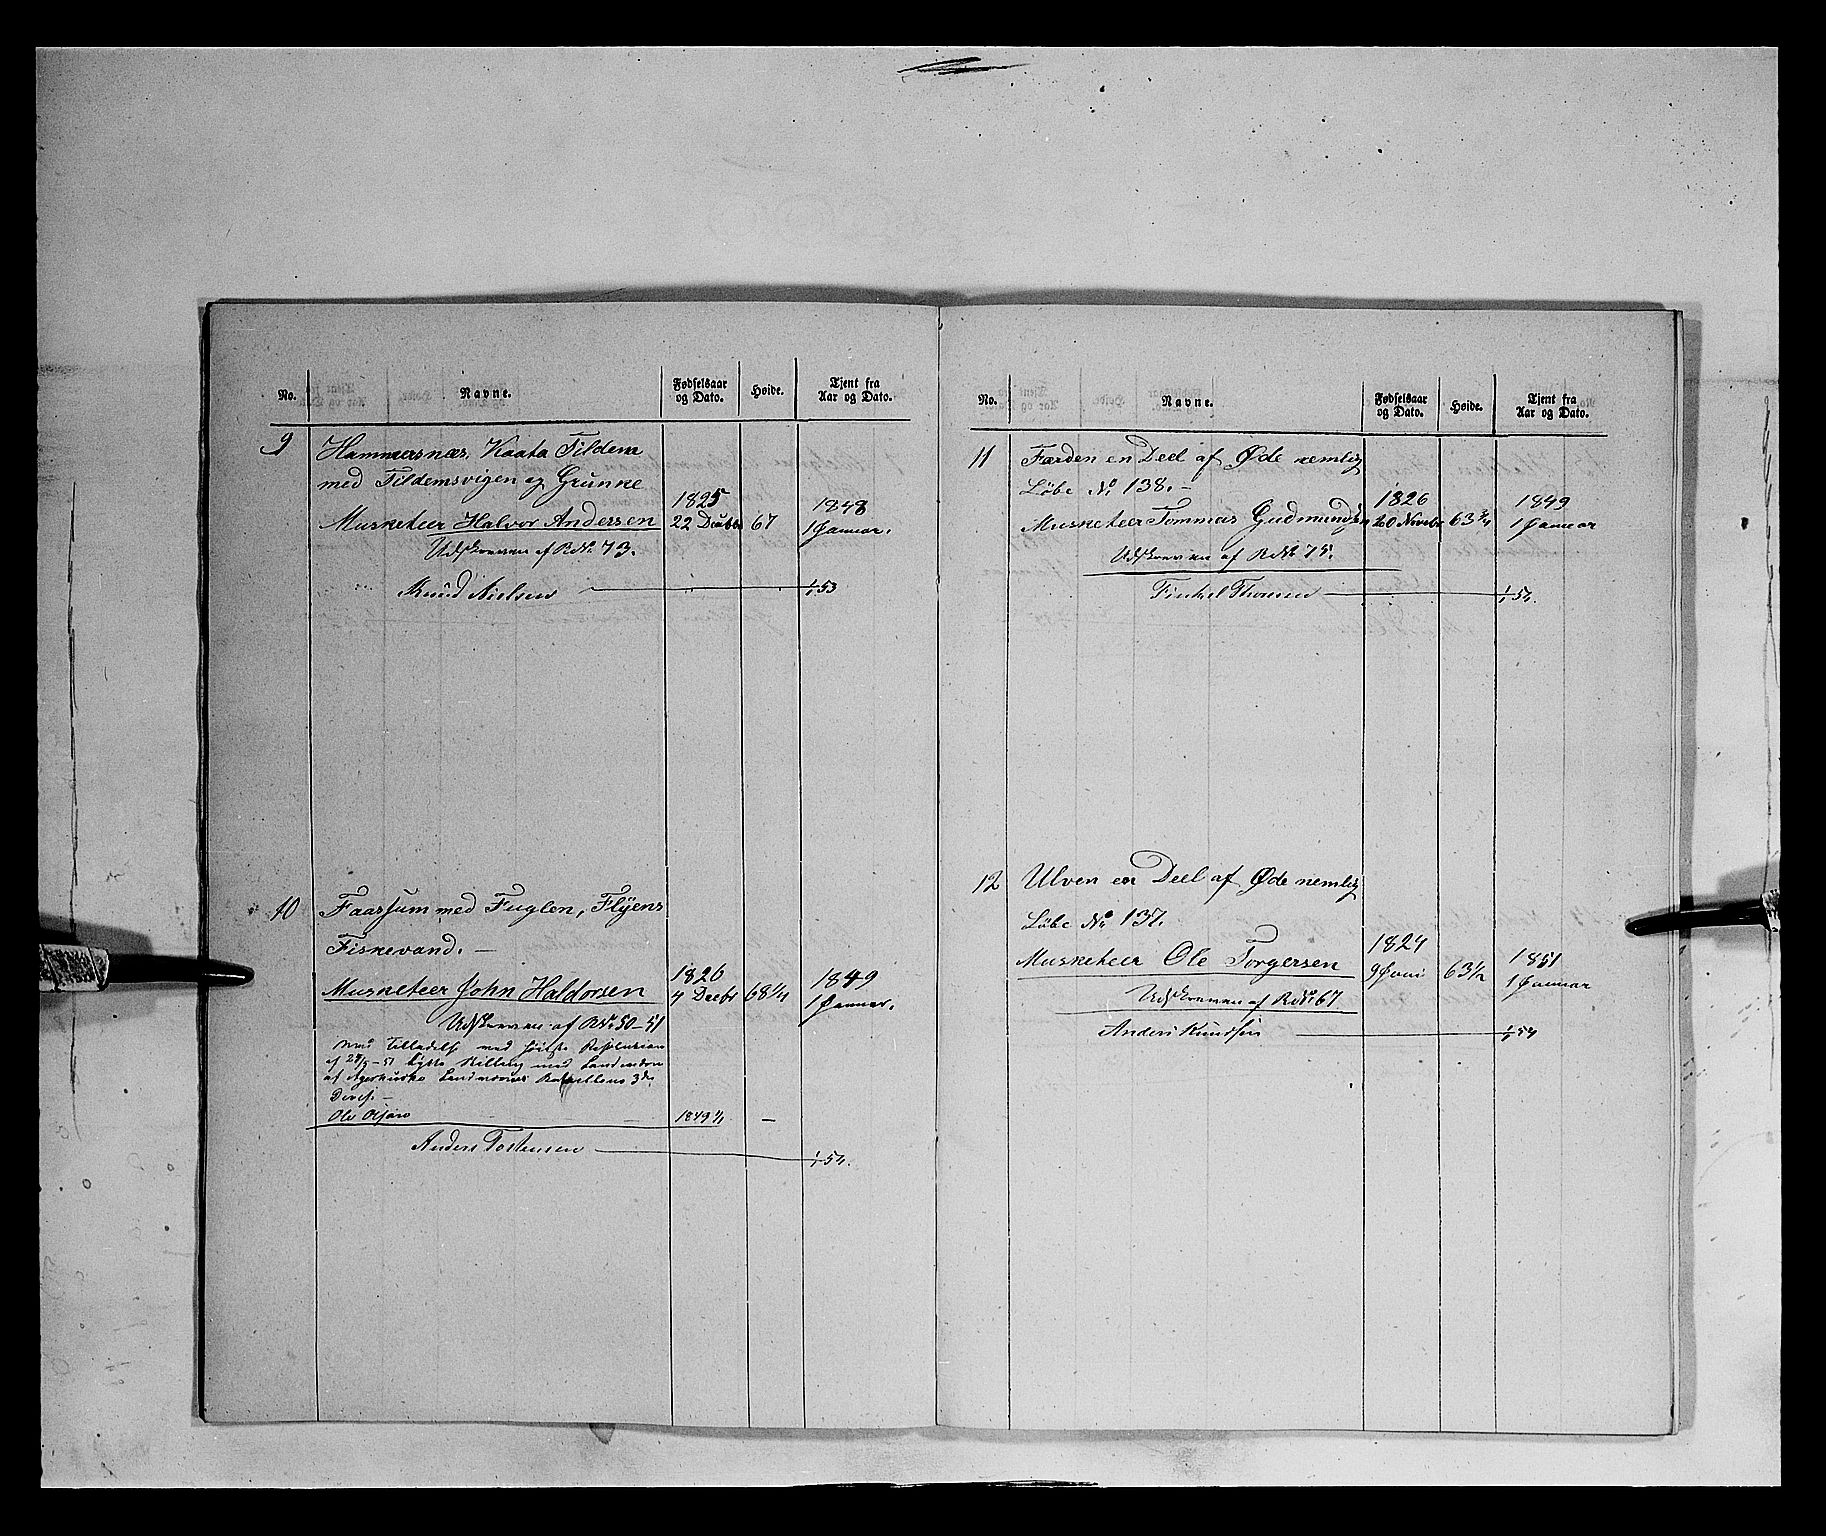 No.
Navne.
Fødselsaar og Dato.
Høide.
Tjent fra Aar og Dato.
9
Hammersnæs, Kaata Tildem
med Tildemsvigen og Grunke
Musketeer Halvor Andersen
1825
22 Decbr
67
1848
1 Januar.
Udskreven af Rd No 73.
Knud Nielsen
1/1 53
10
Faarsum med Fuglen, Flyens
Fiskevand. —
Musketeer John Haldorsen
1826
4 Decbr
68 1/4
1849
1 Januar.
Udskreven af Rd No 50-51
Med Tilladelse med høieste Resolution
af -51 bytte Stilling med Landværn
af Agerhuuske Landeværns Bataillons 3die
Divis. —
Ole
1849 1/1
—
Anders Tostensen
1/1 54.
No.
Navne.
Fødselsaar og Dato.
Høide.
Tjent fra Aar og Dato.
11
Færden en Deel af Øde nemlig
Løbe No 138. —
Musketeer Tommas Gudmundsen
1826
20 Novbr
63 3/4
1849
1 Januar
Udskreven af Rd No 75.
Finkel Thorsen
1/1 54.
12
Ulven en Deel af Øde nemlig
Løbe No 137.
Musketeer Ole Torgersen
1824
9 Juni
63 1/2
1851
1 Januar
Udskreven af Rd No 67
Anders Knudsen
1/1 54